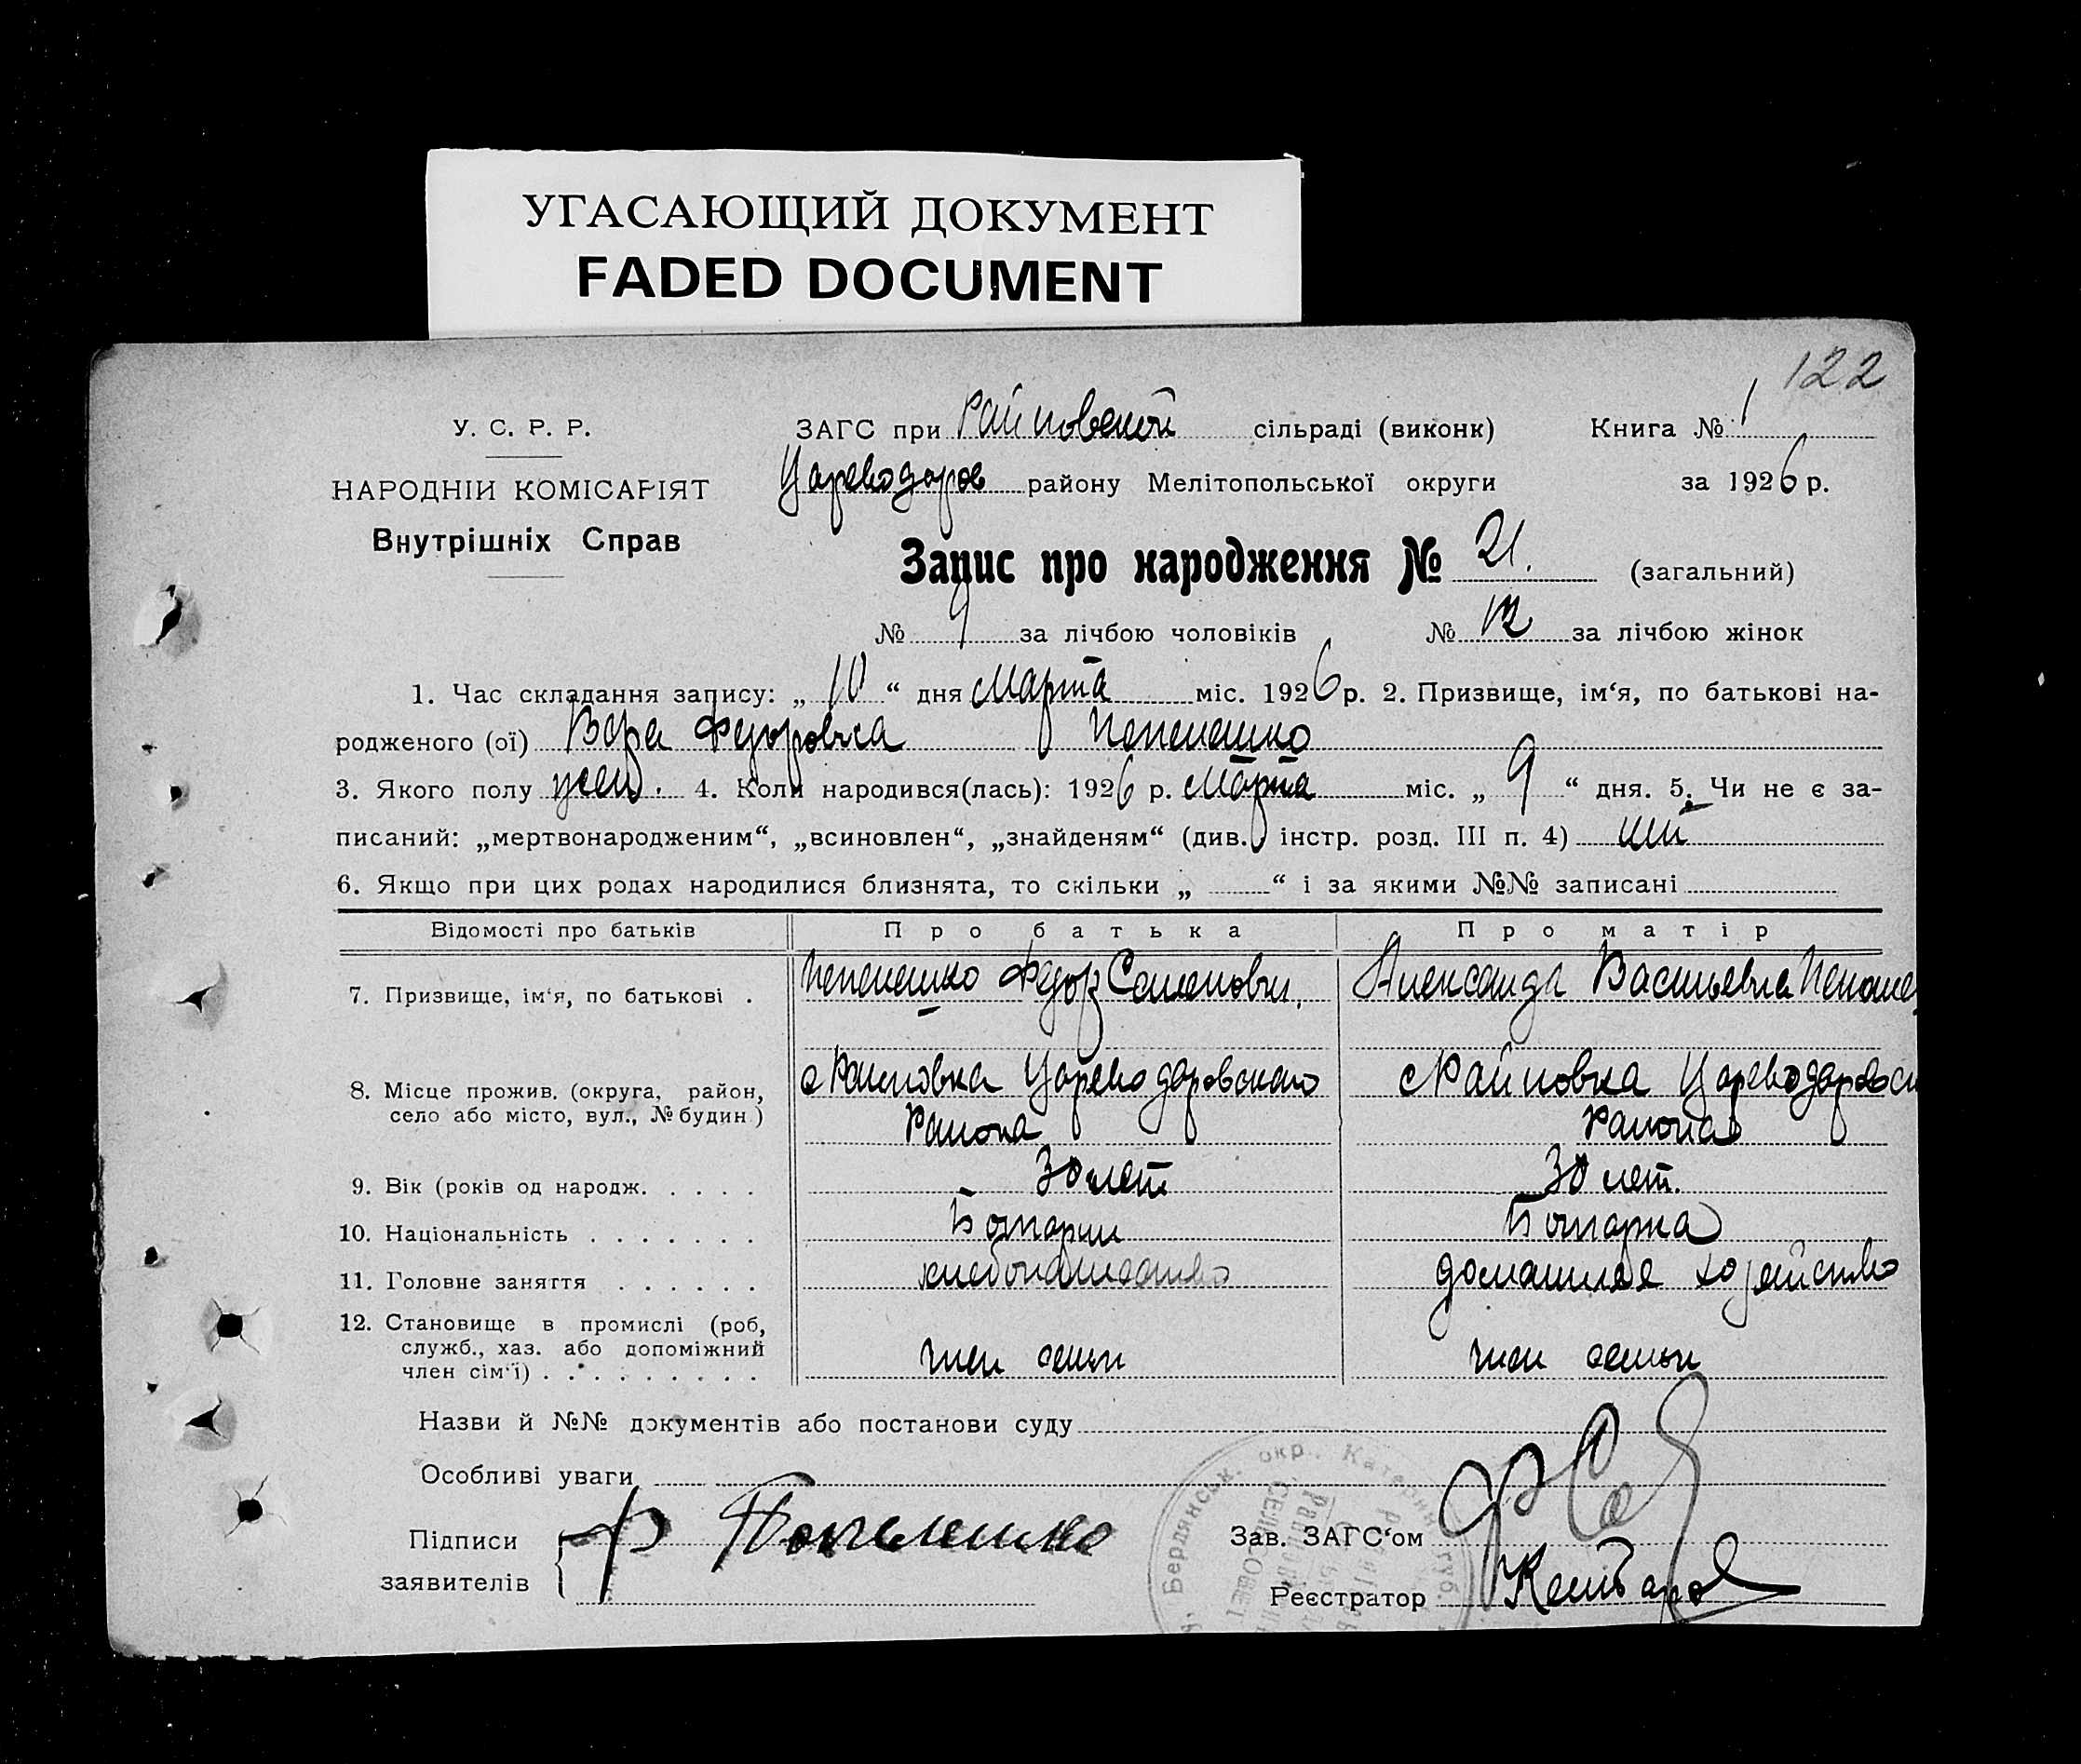 УГАСАЮЩИЙ ДОКУМЕНТ
FADED DOCUMENT
122
У. С. Р. Р.
НАРОДНІИ КОМІСАРІЯТ
Внутрішніх Справ
ЗАГС при Райновской сільраді (виконк) Книга № 1
Цареводаров району Мелітопольської округи за 1926 р.
Запис про народження № 21. (загальний)
№ 9 за лічбою чоловіків № 12 за лічбою жінок
1. Час складання запису: „ 10 “ дня Марта міс. 1926 р. 2. Призвище, ім‘я, по батькові на-
родженого (ої) Вера Федоровна Пепелешко
3. Якого полу жен. 4. Коли народився(лась): 1926 р. Марта міс. „ 9 “ дня. 5. Чи не є за-
писаний: „мертвонародженим“, „всиновлен“, „знайденям“ (див. інстр. розд. III п. 4)
6. Якщо при цих родах народилися близнята, то скільки „ “ і за якими №№ записані
Відомості про батьків Про батька Про матір
7. Призвище, ім‘я, по батькові . Пепелешко Федор Семенович. Александра Васильевна
8. Місце прожив. (округа, район, с Райновка Цареводаровского с Райновка Цареводаровск
село або місто, вул., № будин.) Района Района
9. Вік (років од народж. . . . . 30 лет 30 лет.
10. Національність . . . . . . . Болгарин Болгарка
11. Головне заняття . . . . . . хлебопашество домашнее хозяйство
12. Становище в промислі (роб,
служб., хаз. або допоміжний член семьи член семьи
член сім‘ї) . . . . . . . . .
Назви й №№ документів або постанови суду
Особливі уваги
Підписи Ф Попелешко Зав. ЗАГС‘ом
заявителів Реєстратор
Бердянськ. окр., Катерин. губ.